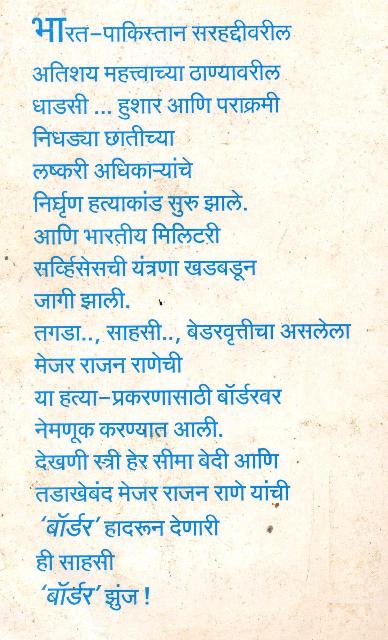 भारत-पाकिस्तान सरहद्दीवरील
अतिशय महत्त्वाच्या ठाण्यावरील
धाडसी ... हुशार आणि पराक्रमी
निधड्या छातीच्या
लष्करी अधिकाऱ्यांचे
निर्घृण हत्याकांड सुरु झाले.
आणि भारतीय मिलिटरी
सर्व्हिसेसची यंत्रणा खडबडून
जागी झाली.
तगडा.., साहसी.., बेडरवृत्तीचा असलेला
मेजर राजन राणेची
या हत्या-प्रकरणासाठी बॉर्डरवर
नेमणूक करण्यात आली.
देखणी स्त्री हेर सीमा बेदी आणि
तडाखेबंद मेजर राजन राणे यांची
‘बॉर्डर’ हादरून देणारी
ही साहसी
‘बॉर्डर’ झुंज !